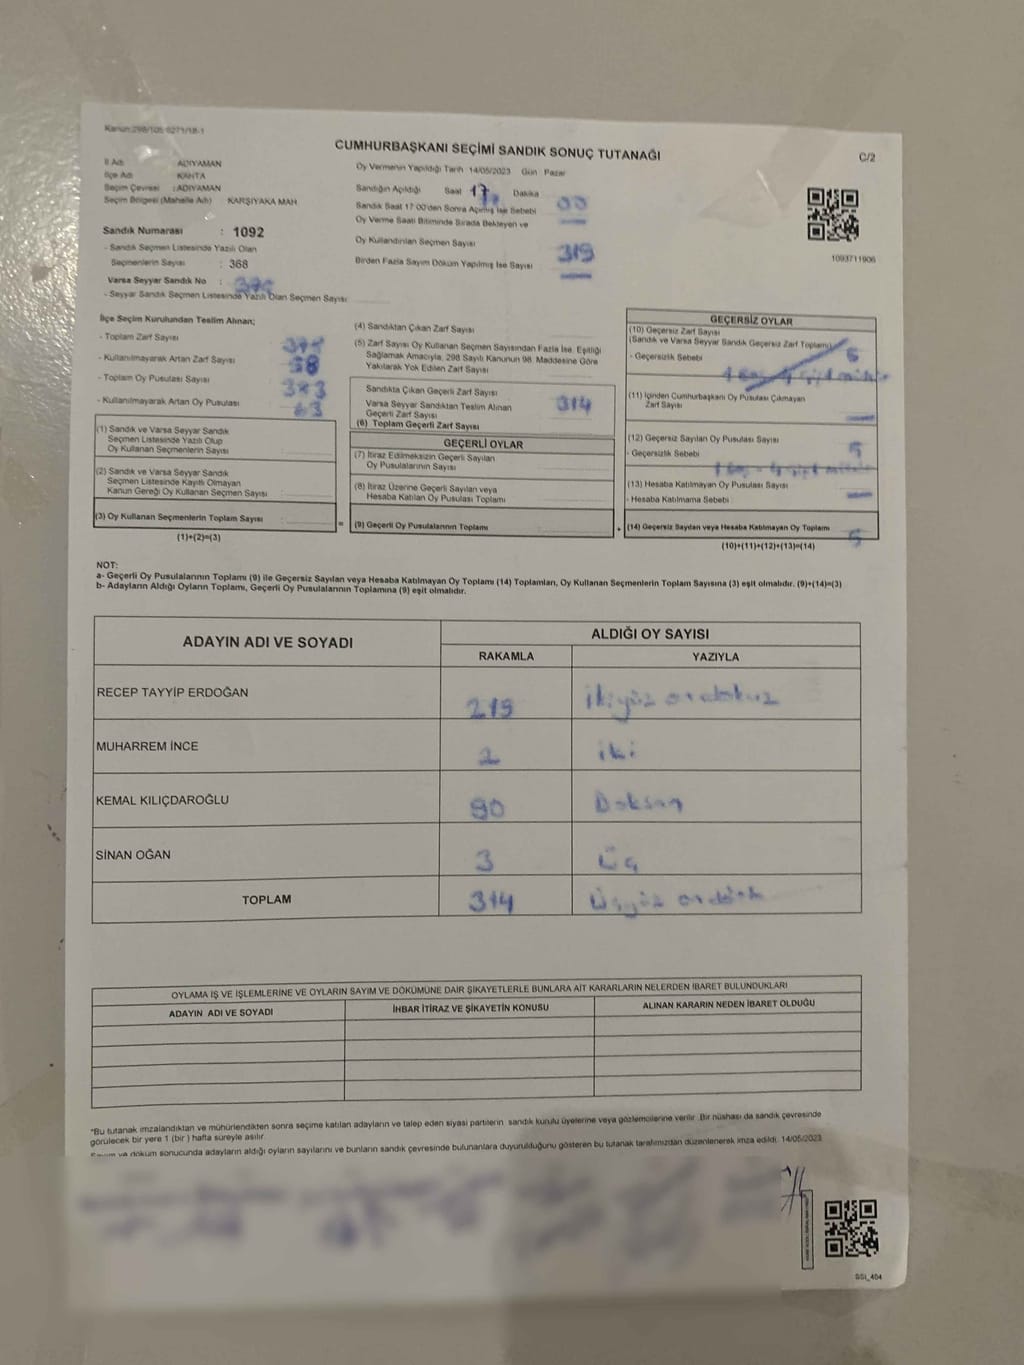 Kanun:298/105 6271/18-1
CUMHURBAŞKANI SEÇİMİ SANDIK SONUÇ TUTANAĞI
C/2
İl Adı : ADIYAMAN
İlçe Adı : KAHTA
Seçim Çevresi : ADIYAMAN
Seçim Bölgesi (Mahalle Adı) KARŞIYAKA MAH
Sandık Numarası : 1092
- Sandık Seçmen Listesinde Yazılı Olan
Seçmenlerin Sayısı : 368
Varsa Seyyar Sandık No :
- Seyyar Sandık Seçmen Listesinde Yazılı Olan Seçmen Sayısı
Oy Vermenin Yapıldığı Tarih 14/05/2023 Gün Pazar
Sandığın Açıldığı Saat 17 Dakika 00
Sandık Saat 17:00'den Sonra Açılmış İse Sebebi
Oy Verme Saati Bitiminde Sırada Bekleyen ve
Oy Kullandırılan Seçmen Sayısı 319
Birden Fazla Sayım Döküm Yapılmış İse Sayısı
1093711906
İlçe Seçim Kurulundan Teslim Alınan;
- Toplam Zarf Sayısı
- Kullanılmayarak Artan Zarf Sayısı
- Toplam Oy Pusulası Sayısı 383
- Kullanılmayarak Artan Oy Pusulası 63
(1) Sandık ve Varsa Seyyar Sandık
Seçmen Listesinde Yazılı Olup
Oy Kullanan Seçmenlerin Sayısı :
(2) Sandık ve Varsa Seyyar Sandık
Seçmen Listesinde Kayıtlı Olmayan
Kanun Gereği Oy Kullanan Seçmen Sayısı :
(3) Oy Kullanan Seçmenlerin Toplam Sayısı :
(1)+(2)=(3)
=
(4) Sandıktan Çıkan Zarf Sayısı
(5) Zarf Sayısı Oy Kullanan Seçmen Sayısından Fazla İse, Eşitliği
Sağlamak Amacıyla, 298 Sayılı Kanunun 98. Maddesine Göre
Yakılarak Yok Edilen Zarf Sayısı
Sandıkta Çıkan Geçerli Zarf Sayısı
Varsa Seyyar Sandıktan Teslim Alınan
Geçerli Zarf Sayısı
314
(6) Toplam Geçerli Zarf Sayısı
GEÇERLİ OYLAR
(7) İtiraz Edilmeksizin Geçerli Sayılan
Oy Pusulalarının Sayısı
(8) İtiraz Üzerine Geçerli Sayılan veya
Hesaba Katılan Oy Pusulası Toplamı
(9) Geçerli Oy Pusulalarının Toplamı
+
GEÇERSİZ OYLAR
(10) Geçersiz Zarf Sayısı
(Sandık ve Varsa Seyyar Sandık Geçersiz Zarf Toplamı)
- Geçersizlik Sebebi
(11) İçinden Cumhurbaşkanı Oy Pusulası Çıkmayan
Zarf Sayısı
(12) Geçersiz Sayılan Oy Pusulası Sayısı 5
- Geçersizlik Sebebi
(13) Hesaba Katılmayan Oy Pusulası Sayısı
- Hesaba Katılmama Sebebi
(14) Geçersiz Sayılan veya Hesaba Katılmayan Oy Toplamı 5
(10)+(11)+(12)+(13)=(14)
NOT:
a- Geçerli Oy Pusulalarının Toplamı (9) ile Geçersiz Sayılan veya Hesaba Katılmayan Oy Toplamı (14) Toplamları, Oy Kullanan Seçmenlerin Toplam Sayısına (3) eşit olmalıdır. (9)+(14)=(3)
b- Adayların Aldığı Oyların Toplamı, Geçerli Oy Pusulalarının Toplamına (9) eşit olmalıdır.
ADAYIN ADI VE SOYADI
ALDIĞI OY SAYISI
RAKAMLA YAZIYLA
RECEP TAYYİP ERDOĞAN 219 ikiyüz ondokuz
MUHARREM İNCE 2 iki
KEMAL KILIÇDAROĞLU 90 Doksan
SİNAN OĞAN 3 Üç
TOPLAM 314 Üçyüz ondört
OYLAMA İŞ VE İŞLEMLERİNE VE OYLARIN SAYIM VE DÖKÜMÜNE DAİR ŞİKAYETLERLE BUNLARA AİT KARARLARIN NELERDEN İBARET BULUNDUKLARI
ADAYIN ADI VE SOYADI İHBAR İTİRAZ VE ŞİKAYETİN KONUSU ALINAN KARARIN NEDEN İBARET OLDUĞU
*Bu tutanak imzalandıktan ve mühürlendikten sonra seçime katılan adayların ve talep eden siyasi partilerin sandık kurulu üyelerine veya gözlemcilerine verilir .Bir nüshası da sandık çevresinde
görülecek bir yere 1 (bir ) hafta süreyle asılır.
Sayım ve döküm sonucunda adayların aldığı oyların sayılarını ve bunların sandık çevresinde bulunanlara duyurulduğunu gösteren bu tutanak tarafımızdan düzenlenerek imza edildi. 14/05/2023
SSI_404